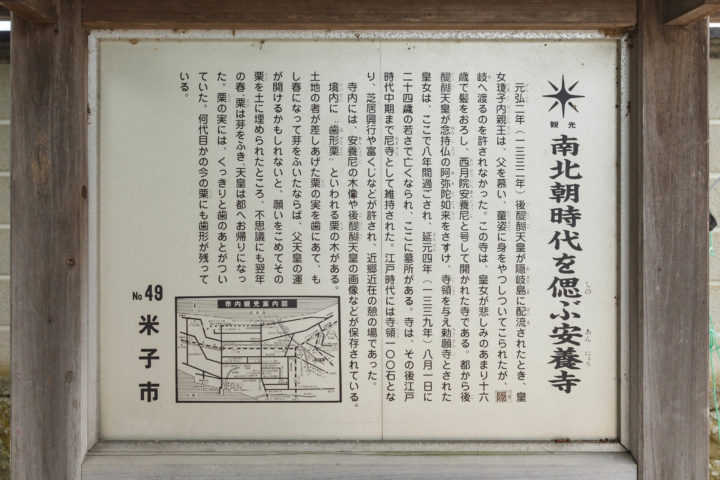 観光
南北朝時代を偲ぶ安養寺
元弘二年(一三三二年)後醍醐天皇が隠岐島に配流されたとき、皇
女瓊子内親王は、父を慕い、童姿に身をやつしついてこられたが、隠
岐へ渡るのを許されなかった。この寺は、皇女が悲しみのあまり十六
歳で髪をおろし、西月院安養尼と号して開かれた寺である。都から後
醍醐天皇が念持仏の阿弥陀如来をさずけ、寺領を与え勅願寺とされた
皇女は、ここで八年間過ごされ、延元四年(一三三九年)八月一日に
二十四歳の若さで亡くなられ、ここに墓所がある。寺は、その後江戸
時代中期まで尼寺として維持された。江戸時代には寺領一〇〇石とな
り、芝居興行や富くじなどが許され、近郷近在の憩の場であった。
寺内には、安養尼の木像や後醍醐天皇の画像などが保存されている。
境内に「歯形栗」といわれる栗の木がある。
土地の者が差しあげた栗の実を歯にあて、も
し春になって芽をふいたならば、父天皇の運
が開けるかもしれないと、願いをこめてその
栗を土に埋められたところ、不思議にも翌年
の春、栗は芽をふき、天皇は都へお帰りになっ
た。栗の実には、くっきりと歯のあとがつい
ていた。何代目かの今の栗にも歯形が残って
いる。
市内観光案内図
No 49
米子市